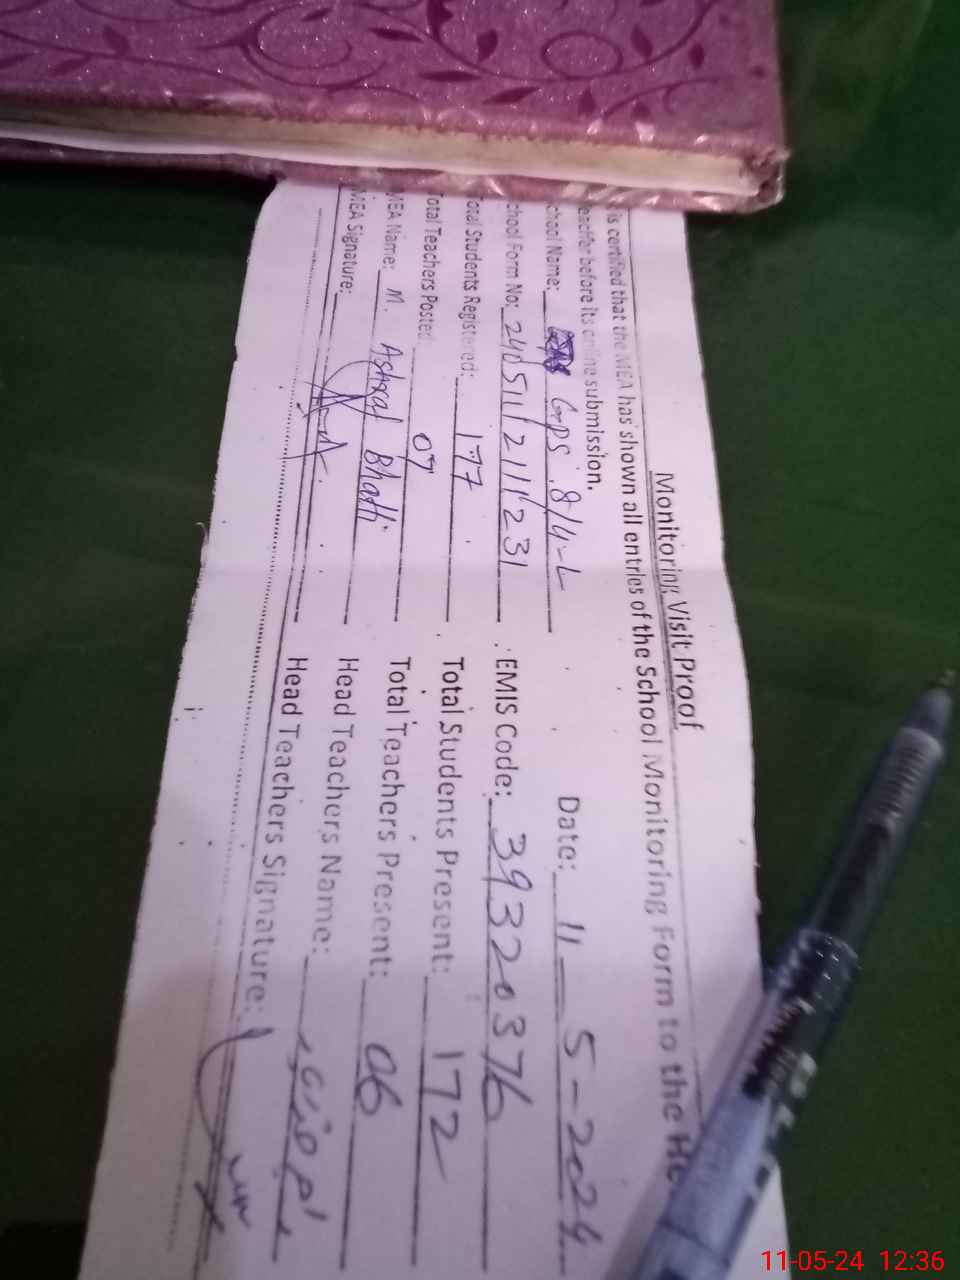 Monitoring Visit Proof
is certified that the MEA has shown all entries of the School Monitoring Form to the He
eacher before its online submission.
chool Name: GPS 8/4-L Date: 11-5-2024
chool Form No: 240511211231 EMIS Code: 39320376
otal Students Registered: 177 Total Students Present: 172
otal Teachers Posted: 07 Total Teachers Present: 06
MEA Name: M. Ashraf Bhatti Head Teachers Name:
MEA Signature: Head Teachers Signature:
11-05-24 12:36